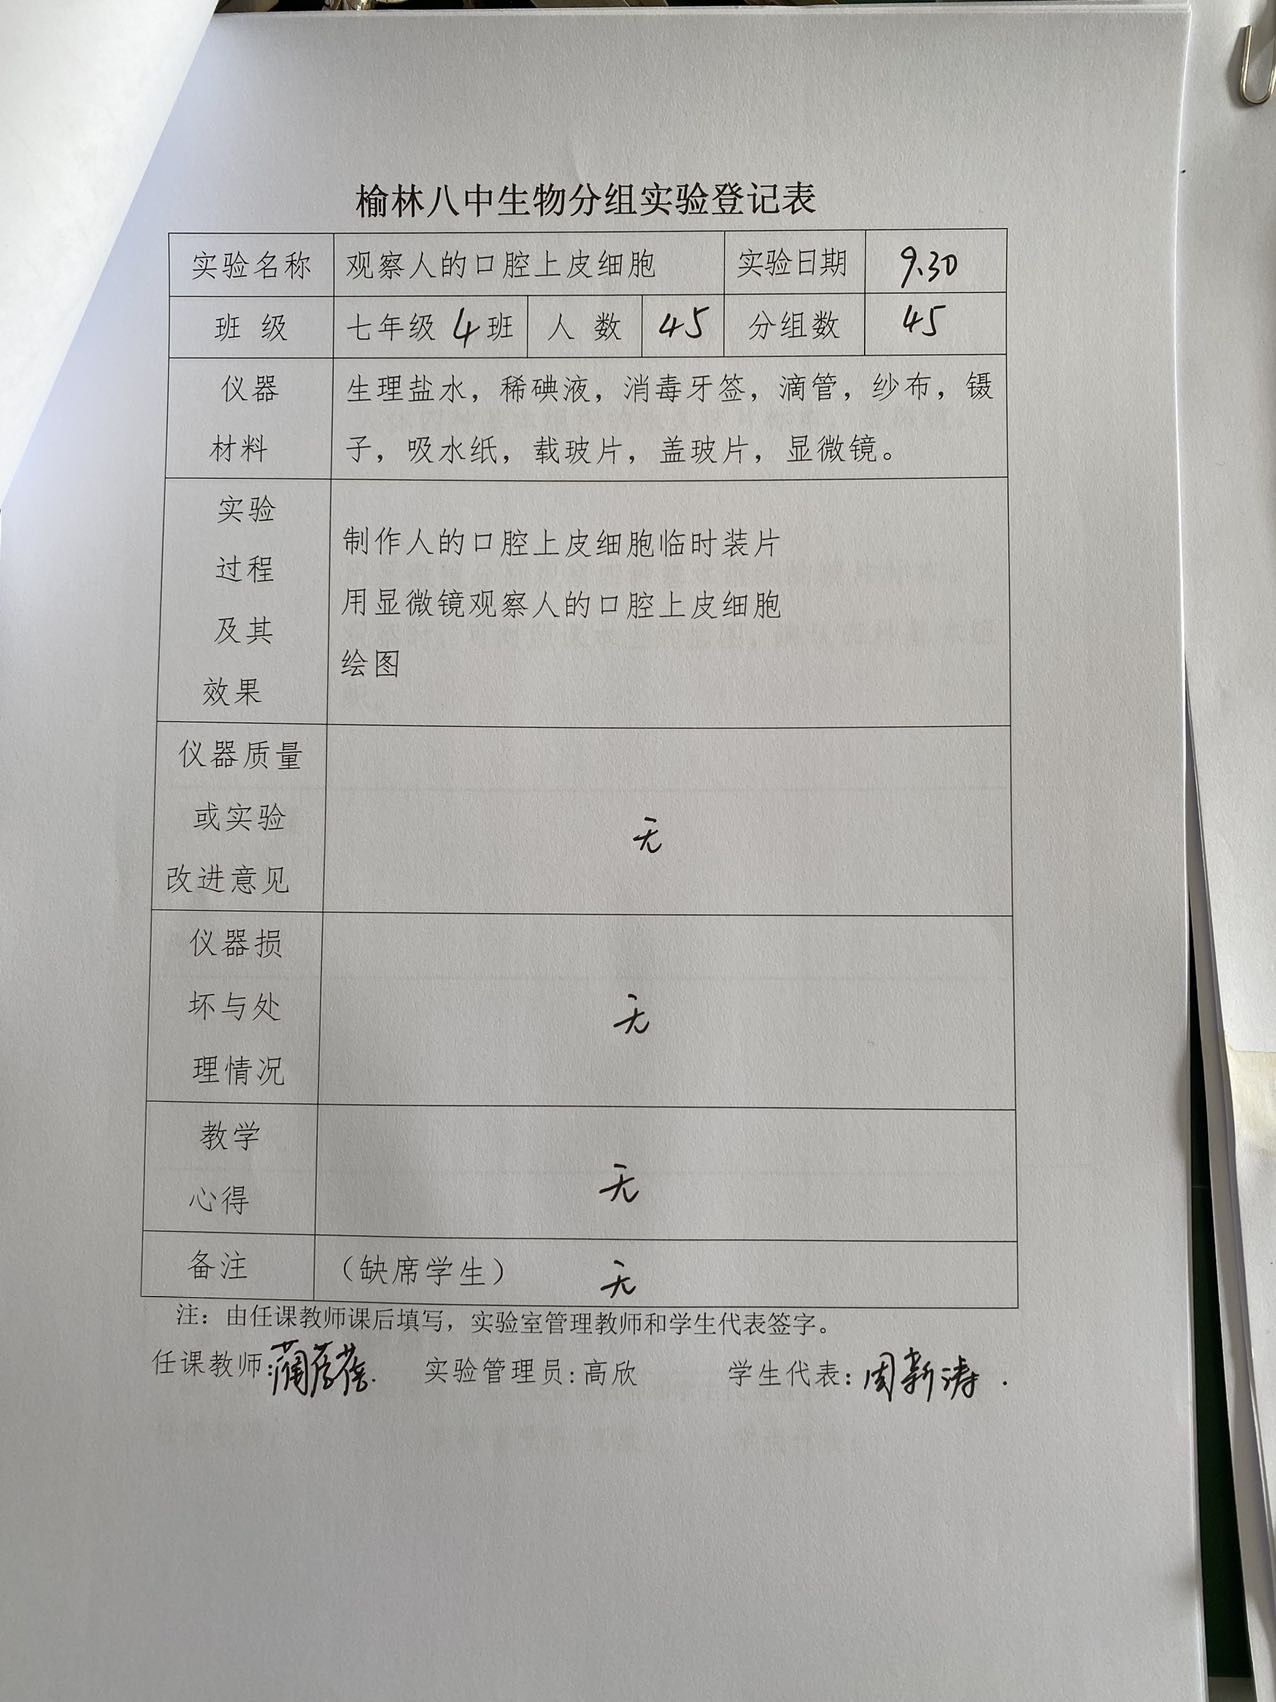 榆林八中生物分组实验登记表
实验名称 观察人的口腔上皮细胞 实验日期 9.30
班 级 七年级 4 班 人 数 45 分组数 45
仪器
材料
生理盐水，稀碘液，消毒牙签，滴管，纱布，镊
子，吸水纸，载玻片，盖玻片，显微镜。
实验
过程
及其
效果
制作人的口腔上皮细胞临时装片
用显微镜观察人的口腔上皮细胞
绘图
仪器质量
或实验
改进意见
无
仪器损
坏与处
理情况
无
教学
心得
无
备注 （缺席学生） 无
注：由任课教师课后填写，实验室管理教师和学生代表签字。
任课教师: 实验管理员:高欣 学生代表: 周新涛.